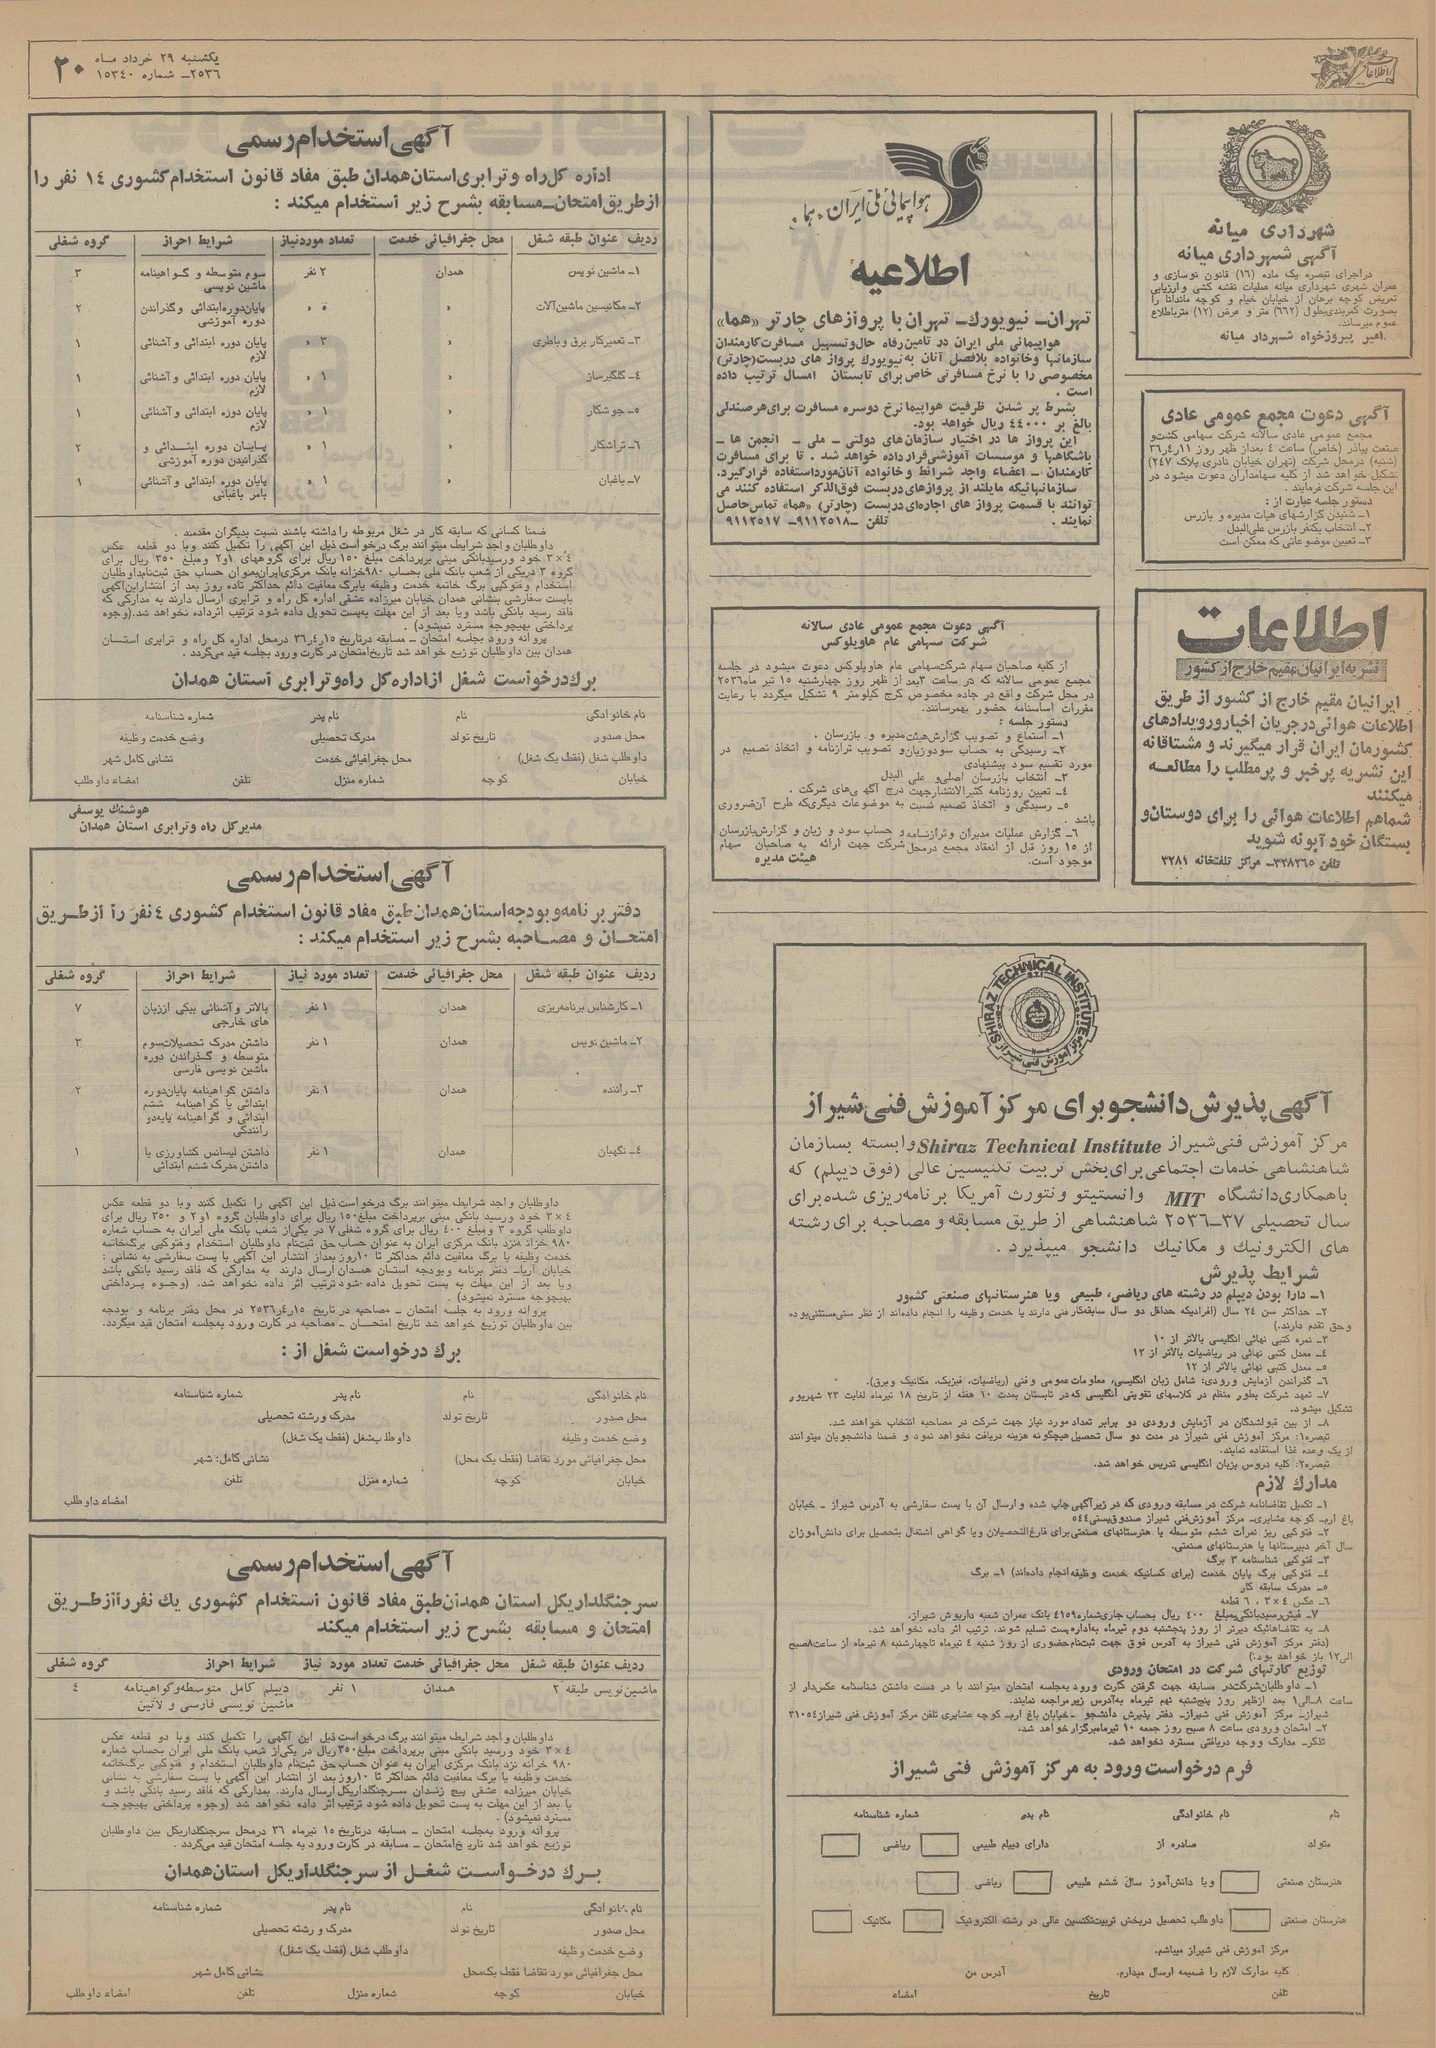 یکشنبه ۲۹ خرداد ماه
۲۵۳۶ـ شماره ۱۵۳۴۰
۲۰
اطلاعات
شهرداری میانه
آگهی شهرداری میانه
دراجرای تبصره یک ماده (۱۶) قانون نوسازی و
عمران شهری شهرداری میانه عملیات نقشه کشی وارزیابی
تعریض کوچه برهان از خیابان خیام و کوچه ماندانا را
بصورت کمربندی بطول (۶۶۲) متر و عرض (۱۲) متر باطلاع
عموم میرساند.
امیر پیروزخواه شهردار میانه
آگهی دعوت مجمع عمومی عادی
مجمع عمومی عادی سالانه شرکت سهامی کشت و
صنعت پیاذر (خاص) ساعت ۴ بعداز ظهر روز ۳۶ر۴ر۱۱
(شنبه) درمحل شرکت (تهران خیابان نادری پلاک ۲۴۷)
تشکیل خواهد شد از کلیه سهامداران دعوت میشود در
این جلسه شرکت فرمایند .
دستور جلسه عبارت از :
۱ـ شنیدن گزارشهای هیات مدیره و بازرس
۲ـ انتخاب یکنفر بازرس علی‌البدل
۳ـ تعیین موضوعاتی که ممکن است
اطلاعات
نشریه ایرانیان مقیم خارج از کشور
ایرانیان مقیم خارج از کشور از طریق
اطلاعات هوائی درجریان اخبار و رویدادهای
کشورمان ایران قرار میگیرند و مشتاقانه
این نشریه پرخبر و پرمطلب را مطالعه
میکنند
شماهم اطلاعات هوائی را برای دوستان و
بستگان خود آبونه شوید
تلفن ۳۲۸۳۶۵ـ مرکز تلفنخانه ۳۲۸۱
هواپیمائی ملی ایران «هما»
اطلاعیه
تهران ـ نیویورك ـ تهران با پروازهای چارتر «هما»
هواپیمائی ملی ایران در تامین رفاه حال و تسهیل مسافرت کارمندان
سازمانها و خانواده بلافصل آنان به نیویورك پرواز های دربست (چارتر)
مخصوصی را با نرخ مسافرتی خاص برای تابستان امسال ترتیب داده
است .
بشرط پر شدن ظرفیت هواپیما نرخ دوسره مسافرت برای هر صندلی
بالغ بر ۴۴۰۰۰ ریال خواهد بود.
این پرواز ها در اختیار سازمان‌های دولتی ـ ملی ـ انجمن ها ـ
باشگاهها و موسسات آموزشی قرار داده خواهد شد . تا برای مسافرت
کارمندان ـ اعضاء واجد شرائط و خانواده آنان مورد استفاده قرار گیرد.
سازمانهائیکه مایلند از پروازهای دربست فوق‌الذکر استفاده کنند می
توانند با قسمت پرواز های اجاره‌ای دربست (چارتر) «هما» تماس حاصل
نمایند . تلفن ـ ۹۱۱۲۵۱۸ـ ۹۱۱۲۵۱۷
آگهی دعوت مجمع عمومی عادی سالانه
شرکت سهامی عام هاویلوکس
از کلیه صاحبان سهام شرکت سهامی عام هاویلوکس دعوت میشود در جلسه
مجمع عمومی سالانه که در ساعت ۳ بعد از ظهر روز چهارشنبه ۱۵ تیر ماه ۲۵۳۶
در محل شرکت واقع در جاده مخصوص کرج کیلومتر ۹ تشکیل میگردد با رعایت
مقررات اساسنامه حضور بهمرسانند.
دستور جلسه :
۱ـ استماع و تصویب گزارش هیئت مدیره و بازرسان .
۲ـ رسیدگی به حساب سود و زیان و تصویب ترازنامه و اتخاذ تصمیم در
مورد تقسیم سود پیشنهادی
۳ـ انتخاب بازرسان اصلی و علی البدل
۴ـ تعیین روزنامه کثیرالانتشار جهت درج آگهی‌های شرکت .
۵ـ رسیدگی و اتخاذ تصمیم نسبت به موضوعات دیگری که طرح آن ضروری
باشد .
۶ـ گزارش عملیات مدیران و ترازنامه و حساب سود و زیان و گزارش بازرسان
از ۱۵ روز قبل از انعقاد مجمع درمحل شرکت جهت ارائه به صاحبان سهام
موجود است. هیئت مدیره
SHIRAZ TECHNICAL INSTITUTE
S.T.I
مرکز آموزش فنی شیراز
آگهی پذیرش دانشجو برای مرکز آموزش فنی شیراز
مرکز آموزش فنی شیراز Shiraz Technical Institute وابسته بسازمان
شاهنشاهی خدمات اجتماعی برای بخش تربیت تکنیسین عالی (فوق دیپلم) که
با همکاری دانشگاه MIT وانستیتو ونتورث آمریکا برنامه‌ریزی شده برای
سال تحصیلی ۳۷ـ۲۵۳۶ شاهنشاهی از طریق مسابقه و مصاحبه برای رشته
های الکترونیك و مکانیك دانشجو میپذیرد .
شرایط پذیرش
۱ـ دارا بودن دیپلم در رشته های ریاضی، طبیعی ویا هنرستانهای صنعتی کشور
۲ـ حداکثر سن ۲۴ سال (افرادیکه حداقل دو سال سابقه‌کار فنی دارند یا خدمت وظیفه را انجام داده‌اند از نظر سنی مستثنی بوده
و حق تقدم دارند.)
۳ـ نمره کتبی نهائی انگلیسی بالاتر از ۱۰
۴ـ معدل کتبی نهائی در ریاضیات بالاتر از ۱۲
۵ـ معدل کتبی نهائی بالاتر از ۱۲
۶ـ گذراندن آزمایش ورودی: شامل زبان انگلیسی، معلومات عمومی و فنی (ریاضیات، فیزیک، مکانیک و برق).
۷ـ تعهد شرکت بطور منظم در کلاسهای تقویتی انگلیسی که در تابستان بمدت ۱۰ هفته از تاریخ ۱۸ تیرماه لغایت ۲۳ شهریور
تشکیل میشود.
۸ـ از بین قبولشدگان در آزمایش ورودی دو برابر تعداد مورد نیاز جهت شرکت در مصاحبه انتخاب خواهند شد.
تبصره۱: مرکز آموزش فنی شیراز در مدت دو سال تحصیل هیچگونه هزینه دریافت نخواهد نمود و ضمنا دانشجویان میتوانند
از یک وعده غذا استفاده نمایند.
تبصره۲: کلیه دروس بزبان انگلیسی تدریس خواهد شد.
مدارك لازم
۱ـ تکمیل تقاضانامه شرکت در مسابقه ورودی که در زیر آگهی چاپ شده و ارسال آن با پست سفارشی به آدرس شیراز ـ خیابان
باغ ارم ـ کوچه عشایری ـ مرکز آموزش فنی شیراز صندوق‌پستی ۵۴۴
۲ـ فتوکپی ریز نمرات ششم متوسطه یا هنرستانهای صنعتی برای فارغ‌التحصیلان ویا گواهی اشتغال بتحصیل برای دانش‌آموزان
سال آخر دبیرستانها یا هنرستانهای صنعتی.
۳ـ فتوکپی شناسنامه ۳ برگ
۴ـ فتوکپی برگ پایان خدمت (برای کسانیکه خدمت وظیفه انجام داده‌اند) ۱ـ برگ
۵ـ مدرک سابقه کار
۶ـ عکس ۴ × ۳ ، ۶ قطعه
۷ـ فیش رسید بانکی بمبلغ ۴۰۰ ریال بحساب جاری شماره ۴۱۵۹ بانک عمران شعبه داریوش شیراز.
۸ـ به تقاضاهائیکه دیرتر از روز پنجشنبه دوم تیرماه به‌اداره پست تسلیم شوند، ترتیب اثر داده نخواهد شد.
(دفتر مرکز آموزش فنی شیراز به آدرس فوق جهت ثبت‌نام حضوری از روز شنبه ۴ تیرماه تا چهارشنبه ۸ تیرماه از ساعت ۸ صبح
الی ۱۲ باز خواهد بود.)
توزیع کارتهای شرکت در امتحان ورودی
۱ـ داوطلبان شرکت در مسابقه جهت گرفتن کارت ورود به‌جلسه امتحان میتوانند با در دست داشتن شناسنامه عکس‌دار از
ساعت ۸ الی ۱ بعد ازظهر روز پنج‌شنبه نهم تیرماه به‌آدرس زیر مراجعه نمایند.
شیراز ـ مرکز آموزش فنی شیراز ـ دفتر پذیرش دانشجو ـ خیابان باغ ارم ـ کوچه عشایری تلفن مرکز آموزش فنی شیراز ۳۱۰۵۴
۲ـ امتحان ورودی ساعت ۸ صبح روز جمعه ۱۰ تیرماه برگزار خواهد شد.
تذکر ـ مدارک و وجه دریافتی مسترد نخواهد شد.
فرم درخواست ورود به مرکز آموزش فنی شیراز
نام نام خانوادگی نام پدر شماره شناسنامه
متولد صادره از دارای دیپلم طبیعی ریاضی
هنرستان صنعتی ویا دانش‌آموز سال ششم طبیعی ریاضی
هنرستان صنعتی داوطلب تحصیل دربخش تربیت تکنسین عالی در رشته الکترونیک مکانیک
مرکز آموزش فنی شیراز میباشم.
کلیه مدارک لازم را ضمیمه ارسال میدارم. آدرس من
تلفن تاریخ امضاء
آگهی استخدام رسمی
اداره کل راه و ترابری استان همدان طبق مفاد قانون استخدام کشوری ۱۴ نفر را
ازطریق امتحان ـ مسابقه بشرح زیر استخدام میکند :
ردیف عنوان طبقه شغل محل جغرافیائی خدمت تعداد موردنیاز شرایط احراز گروه شغلی
۱ـ ماشین نویس همدان ۲ نفر سوم متوسطه و گواهینامه ۳
ماشین نویسی
۲ـ مکانیسین ماشین‌آلات » » پایان دوره ابتدائی و گذراندن ۲
دوره آموزشی
۳ـ تعمیرکار برق و باطری » ۳ » پایان دوره ابتدائی و آشنائی ۱
لازم
۴ـ گلگیرساز » ۱ » پایان دوره ابتدائی و آشنائی ۱
لازم
۵ـ جوشکار » ۱ » پایان دوره ابتدائی و آشنائی ۱
لازم
۶ـ تراشکار » ۱ » پایان دوره ابتدائی و ۲
گذرانیدن دوره آموزشی
۷ـ باغبان » ۱ » پایان دوره ابتدائی و آشنائی ۱
بامر باغبانی
ضمنا کسانی که سابقه کار در شغل مربوطه را داشته باشند نسبت بدیگران مقدمند .
داوطلبان واجد شرایط میتوانند برگ درخواست ذیل این آگهی را تکمیل کنند وبا دو قطعه عکس
۴×۳ خود ورسید بانکی مبنی برپرداخت مبلغ ۱۵۰ ریال برای گروههای ۱و۲ ومبلغ ۳۵۰ ریال برای
گروه ۳ دریکی از شعب بانک ملی بحساب ۹۸۰ خزانه بانک مرکزی ایران بعنوان حساب حق ثبت‌نام داوطلبان
استخدام و فتوکپی برگ خاتمه خدمت وظیفه یابرگ معافیت دائم حداکثر تاده روز بعد از انتشار این آگهی
بایست سفارشی بنشانی همدان خیابان میرزاده عشقی اداره کل راه و ترابری ارسال دارند به مدارکی که
فاقد رسید بانکی باشد ویا بعد از این مهلت به‌پست تحویل داده شود ترتیب اثرداده نخواهد شد. (وجوه
پرداختی بهیچوجه مسترد نمیشود) .
پروانه ورود بجلسه امتحان ـ مسابقه درتاریخ ۳۶ر۴ر۱۵ درمحل اداره کل راه و ترابری استان
همدان بین داوطلبان توزیع خواهد شد تاریخ امتحان در کارت ورود بجلسه قید می‌گردد .
برك درخواست شغل ازاداره کل راه و ترابری استان همدان
نام خانوادگی نام نام پدر شماره شناسنامه
محل صدور تاریخ تولد مدرک تحصیلی وضع خدمت وظیفه
داوطلب شغل (فقط یک شغل) محل جغرافیائی خدمت نشانی کامل شهر
خیابان کوچه شماره منزل تلفن امضاء داوطلب
هوشنگ یوسفی
مدیرکل راه وترابری استان همدان
آگهی استخدام رسمی
دفتر برنامه و بودجه استان همدان طبق مفاد قانون استخدام کشوری ۴ نفر را از طریق
امتحان و مصاحبه بشرح زیر استخدام میکند :
ردیف عنوان طبقه شغل محل جغرافیائی خدمت تعداد مورد نیاز شرایط احراز گروه شغلی
۱ـ کارشناس برنامه‌ریزی همدان ۱ نفر بالاتر و آشنائی بیکی اززبان ۷
های خارجی
۲ـ ماشین نویس همدان ۱ نفر داشتن مدرک تحصیلات سوم ۳
متوسطه و گذراندن دوره
ماشین نویسی فارسی
۳ـ راننده همدان ۱ نفر داشتن گواهینامه پایان دوره ۲
ابتدائی یا گواهینامه ششم
ابتدائی و گواهینامه پایه‌دو
رانندگی
۴ـ نگهبان همدان ۱ نفر داشتن لیسانس کشاورزی یا ۱
داشتن مدرک ششم ابتدائی
داوطلبان واجد شرایط میتوانند برگ درخواست ذیل این آگهی را تکمیل کنند وبا دو قطعه عکس
۴×۳ خود ورسید بانکی مبنی برپرداخت مبلغ ۱۵۰ ریال برای داوطلبان گروه ۱و۲ و ۳۵۰ ریال برای
داوطلب گروه ۳ ومبلغ ۴۰۰ ریال برای گروه شغلی ۷ در یکی‌از شعب بانک ملی ایران به حساب شماره
۹۸۰ خزانه نزد بانک مرکزی ایران به عنوان حساب حق ثبت‌نام داوطلبان استخدام وفتوکپی برگ‌خاتمه
خدمت وظیفه یا برگ معافیت دائم حداکثر تا ۱۰ روز بعداز انتشار این آگهی با پست سفارشی به نشانی :
خیابان آریا ـ دفتر برنامه وبودجه استان همدان ارسال دارند به مدارکی که فاقد رسید بانکی باشد
ویا بعد از این مهلت به پست تحویل داده شود ترتیب اثر داده نخواهد شد. (وجوه پرداختی
بهیچوجه مسترد نمیشود) .
پروانه ورود به جلسه امتحان ـ مصاحبه در تاریخ ۲۵۳۶ر۴ر۱۵ در محل دفتر برنامه و بودجه
بین داوطلبان توزیع خواهد شد تاریخ امتحان ـ مصاحبه در کارت ورود به‌جلسه امتحان قید میگردد.
برك درخواست شغل از :
نام خانوادگی نام نام پدر شماره شناسنامه
محل صدور تاریخ تولد مدرک ورشته تحصیلی
وضع خدمت وظیفه داوطلب شغل (فقط یک شغل)
محل جغرافیائی مورد تقاضا (فقط یک محل) نشانی کامل: شهر
خیابان کوچه شماره منزل تلفن
امضاء داوطلب
آگهی استخدام رسمی
سرجنگلداریکل استان همدان طبق مفاد قانون استخدام کشوری یك نفر را از طریق
امتحان و مسابقه بشرح زیر استخدام میکند
ردیف عنوان طبقه شغل محل جغرافیائی خدمت تعداد مورد نیاز شرایط احراز گروه شغلی
ماشین نویس طبقه ۲ همدان ۱ نفر دیپلم کامل متوسطه و گواهینامه ۴
ماشین نویسی فارسی و لاتین
داوطلبان واجد شرایط میتوانند برگ درخواست ذیل این آگهی را تکمیل کنند وبا دو قطعه عکس
۴×۳ خود ورسید بانکی مبنی برپرداخت مبلغ ۳۵۰ ریال در یکی‌از شعب بانک ملی ایران بحساب شماره
۹۸۰ خزانه نزد بانک مرکزی ایران به عنوان حساب حق ثبت‌نام داوطلبان استخدام و فتوکپی برگ‌خاتمه
خدمت وظیفه یا برگ معافیت دائم حداکثر تا ۱۰ روز بعد از انتشار این آگهی با پست سفارشی به نشانی
خیابان میرزاده عشقی پیچ زندان سرجنگلداریکل ارسال دارند. بمدارکی که فاقد رسید بانکی باشد و
یا بعد از این مهلت به پست تحویل داده شود ترتیب اثر داده نخواهد شد (وجوه پرداختی بهیچوجه
مسترد نمیشود) .
پروانه ورود به‌جلسه امتحان ـ مسابقه درتاریخ ۱۵ تیرماه ۳۶ درمحل سرجنگلداریکل بین داوطلبان
توزیع خواهد شد تاریخ امتحان ـ مسابقه در کارت ورود به جلسه امتحان قید می‌گردد .
برك درخواست شغل از سرجنگلداریکل استان همدان
نام خانوادگی نام نام پدر شماره شناسنامه
محل صدور تاریخ تولد مدرک و رشته تحصیلی
وضع خدمت وظیفه داوطلب شغل (فقط یک شغل)
محل جغرافیائی مورد تقاضا فقط یک محل نشانی کامل شهر
خیابان کوچه شماره منزل تلفن امضاء داوطلب